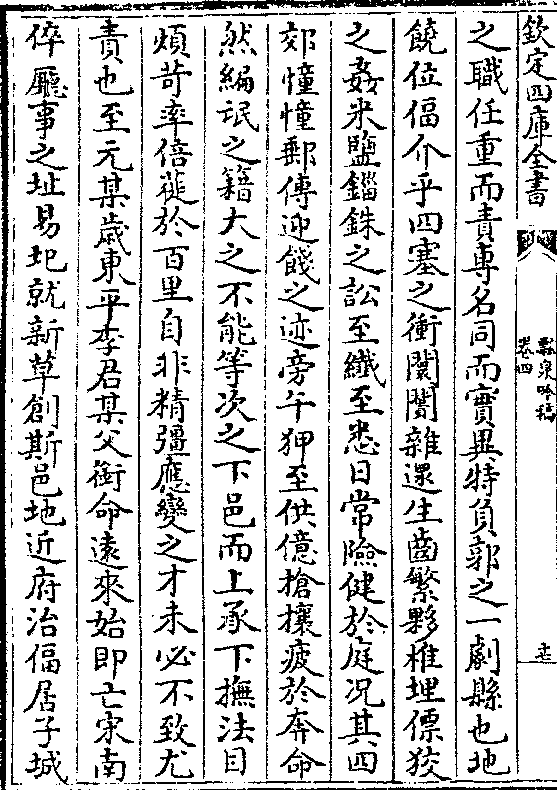 欽定四庫全書
瓢泉吟稿
卷四
之職任重而責專名同而實異特負郭之一劇縣也地
饒位偪介乎四塞之衝闤闠雜遝生齒繁夥椎埋僄狡
之姦米鹽錙銖之訟至纎至悉日常險健於庭况其四
郊憧憧郵傳迎餞之迹旁午狎至供億搶攘疲於奔命
然編氓之籍大之不能等次之下邑而上承下撫法目
煩苛率倍蓰於百里自非精彊應變之才未必不致尤
責也至元某歲東平李君某父銜命逺來始即亡宋南
倅廳事之址易圯就新草創斯邑地近府治偪居子城